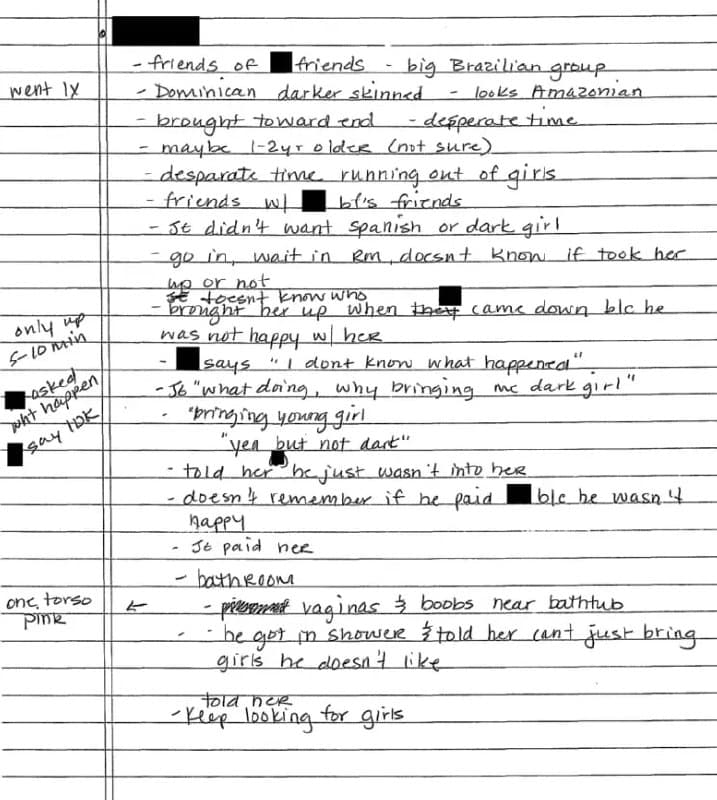 - friends of friends - big Brazilian group
went 1x
- Dominican darker skinned - looks Amazonian
- brought toward end - desperate time
- maybe 1-2yr older (not sure)
- desparate time running out of girls
- friends w/ bf's friends
- JE didn't want Spanish or dark girl
- go in, wait in Rm, doesnt know if took her
up or not
JE doesnt know who
- brought her up when they came down b/c he
was not happy w/ her
only up
5-10 min
- says "I dont know what happened"
asked
wht happen
say IDK
- JE "what doing, why bringing me dark girl"
- "bringing young girl
"yea but not dark"
- told her he just wasn't into her
- doesn't remember if he paid b/c he wasn't
happy
- JE paid her
- bathroom
one, torso
pink
←
- vaginas & boobs near bathtub
- he got in shower & told her cant just bring
girls he doesn't like
told her
- Keep looking for girls